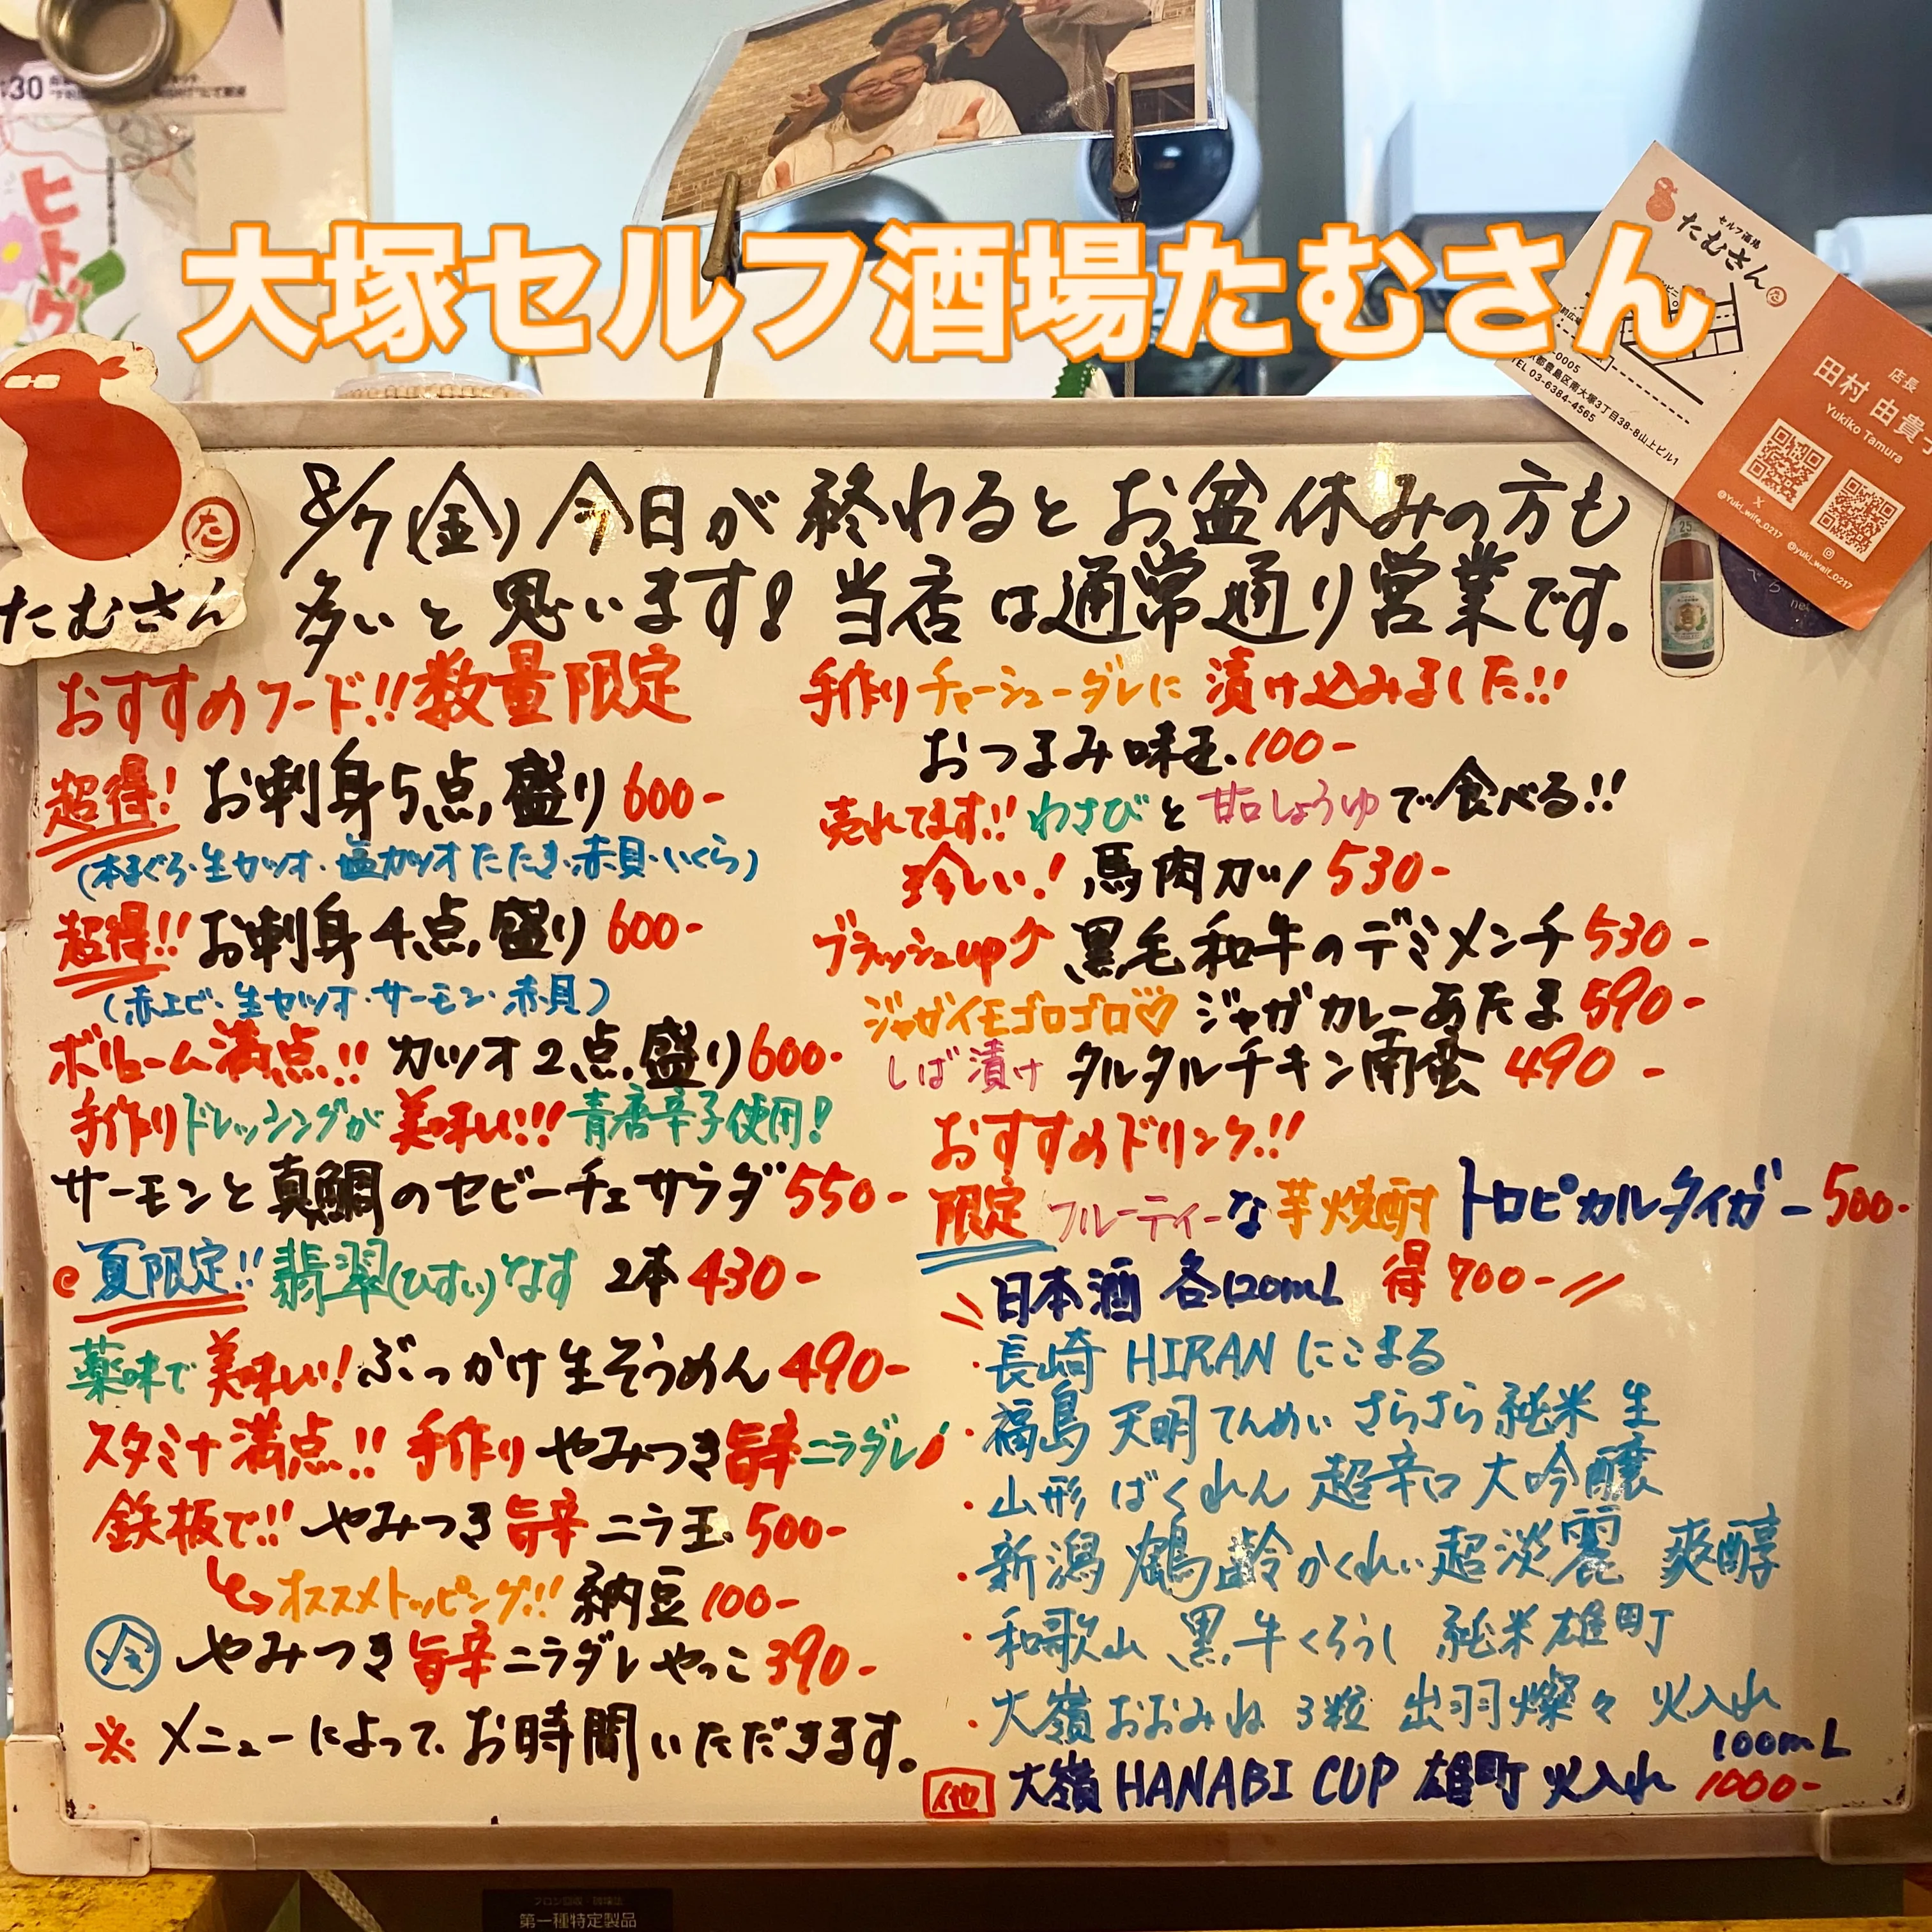 大塚セルフ酒場たむさん
ヒトツ
セルフ酒場
たむさん
TEL 03-6384-4565
店長
田村 由貴
Yukiko Tamura
@Yuki_wife_0217
@yuki_waif_0217
たむさん
8/7(金)今日が終わるとお盆休みの方も
多いと思います!当店は通常通り営業です。
おすすめフード!!数量限定
超得! お刺身5点盛り 600-
(本まぐろ・生カツオ・塩カツオたたき・赤貝・いくら)
超得!! お刺身4点盛り 600-
(赤エビ・生カツオ・サーモン・赤貝)
ボリューム満点!! カツオ2点盛り 600-
手作りドレッシングが美味い!!!青唐辛子使用!
サーモンと真鯛のセビーチェサラダ 550-
夏限定!! 翡翠(ひすい)なす 2本 430-
薬味で美味い!ぶっかけ生そうめん 490-
スタミナ満点!! 手作りやみつき旨辛ニラダレ
鉄板で!! やみつき旨辛ニラ玉 500-
オススメトッピング!! 納豆 100-
冷 やみつき旨辛ニラダレやっこ 390-
※メニューによって、お時間いただきます。
手作りチャーシューダレに漬け込みました!!
おつまみ味玉 100-
売れてます!! わさびと甘口しょうゆで食べる!!
珍しい! 馬肉カツ 530-
ブラッシュup 黒毛和牛のデミメンチ 530-
ジャガイモゴロゴロ♡ ジャガカレーあたま 590-
しば漬け タルタルチキン南蛮 490-
おすすめドリンク!!
限定 フルーティーな芋焼酎 トロピカルタイガー 500-
日本酒 各120mL 得700-
・長崎 HIRAN にこまる
・福島 天明 てんめい さらさら純米 生
・山形 ばくれん 超辛口 大吟醸
・新潟 鶴齢 かくれい 超淡麗 爽醇
・和歌山 黒牛 くろうし 純米雄町
・大嶺 おおみね 3粒 出羽燦々 火入れ
他 大嶺 HANABI CUP 雄町 火入れ 100mL 1000-
第一種特定製品